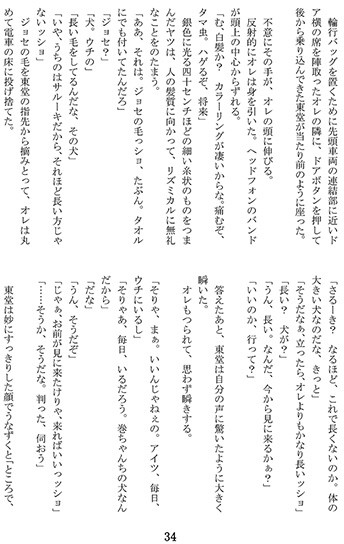 輪行バッグを置くために先頭車両の連結部に近いド
ア横の席を陣取ったオレの隣に、ドアボタンを押して
後から乗り込んできた東堂が当たり前のように座った。
不意にその手が、オレの頭に伸びる。
反射的にオレは身を引いた。ヘッドフォンのバンド
が頭上の中心からずれる。
「む、白髪か？　カラーリングが凄いからな。痛むぞ、
タマ虫。ハゲるぞ、将来」
銀色に光る四十センチほどの細い糸状のものをつま
んだヤツは、人の髪質に向かって、リズミカルに無礼
なことをのたまう。
「ああ、それは。ジョセの毛っショ、たぶん。タオル
にでも付いてたんだろ」
「ジョセ？」
「犬。ウチの」
「長い毛をしてるんだな、その犬」
「いや、うちのはサルーキだから、それほど長い方じゃ
ないッショ」
ジョセの毛を東堂の指先から摘みとって、オレは丸
めて電車の床に投げ捨てた。
「さるーき？　なるほど、これで長くないのか。体の
大きい犬なのだな、きっと」
「そうだなぁ、立ったら、オレよりもかなり長いッショ」
「長い？　犬が？」
「うん、長い。なんだ、今から見に来るかぁ？」
「いいのか、行って？」
答えたあと、東堂は自分の声に驚いたように大きく
瞬いた。
オレもつられて、思わず瞬きする。
「そりゃ、まぁ。いいんじゃねぇの。アイツ、毎日、
ウチにいるし」
「そりゃあ、毎日、いるだろう。巻ちゃんちの犬なん
だから」
「だな」
「うん、そうだぞ」
「じゃぁ、お前が見に来たけりゃ、来ればいいッショ」
「……そうか、そうだな。判った、伺おう」
東堂は妙にすっきりした顔でうなずくと「ところで、
34